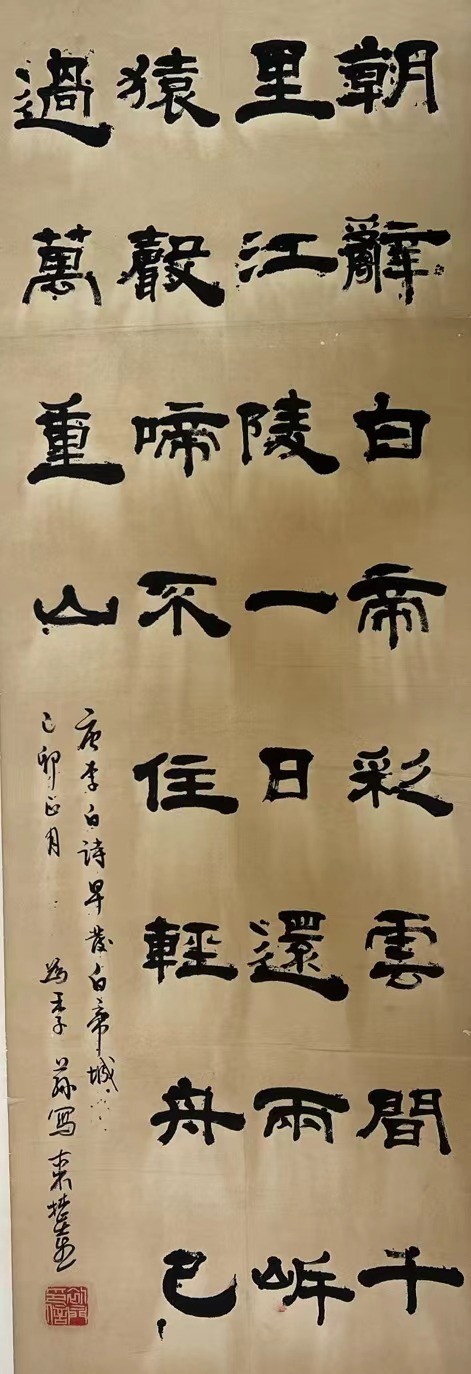 朝辭白帝彩雲間千
里江陵一日還兩岸
猿聲啼不住輕舟已
過萬重山
唐李白詩早發白帝城
己卯正月 為 蘇寫